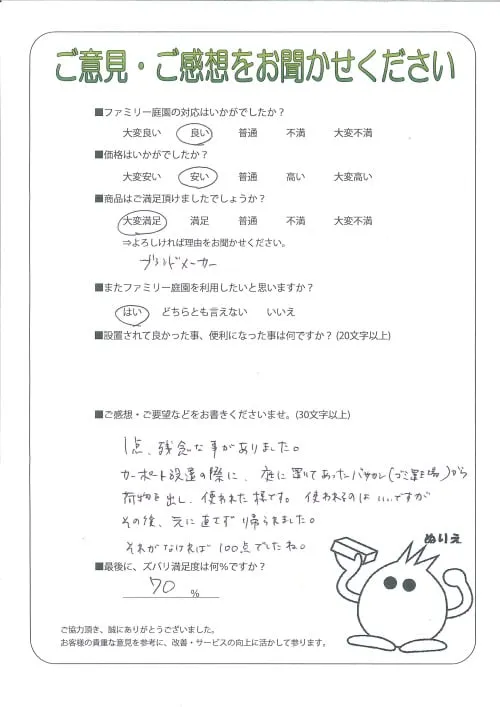 ご意見・ご感想をお聞かせください
■ファミリー庭園の対応はいかがでしたか？
大変良い 良い 普通 不満 大変不満
■価格はいかがでしたか？
大変安い 安い 普通 高い 大変高い
■商品はご満足頂けましたでしょうか？
大変満足 満足 普通 不満 大変不満
⇒よろしければ理由をお聞かせください。
ブランドメーカー
■またファミリー庭園を利用したいと思いますか？
はい どちらとも言えない いいえ
■設置されて良かった事、便利になった事は何ですか？(20文字以上)
■ご感想・ご要望などをお書きくださいませ。(30文字以上)
1点、残念な事がありました。
カーポート設置の際に、庭に置いてあった(ゴミ置き場)から
荷物を出し、使われた様です。使われるのはいいですが
その後、元に直さず帰られました。
それがなければ100点でしたね。
■最後に、ズバリ満足度は何％ですか？
70 %
ぬりえ
ご協力頂き、誠にありがとうございました。
お客様の貴重な意見を参考に、改善・サービスの向上に活かして参ります。